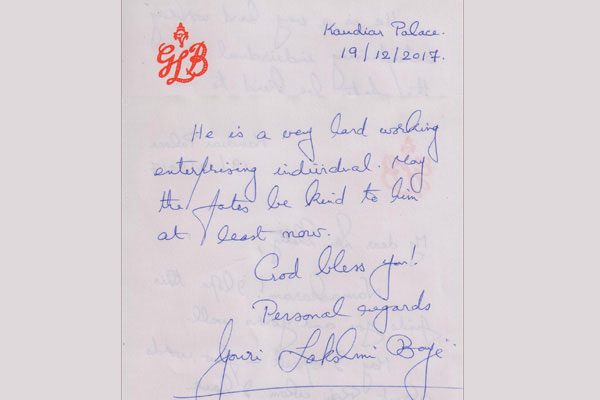 GLB
Kaudiar Palace.
19/12/2017.
He is a very hard working
enterprising individual. May
the fates be kind to him
at least now.
God bless you!
Personal regards
Gouri Lakshmi Bayi